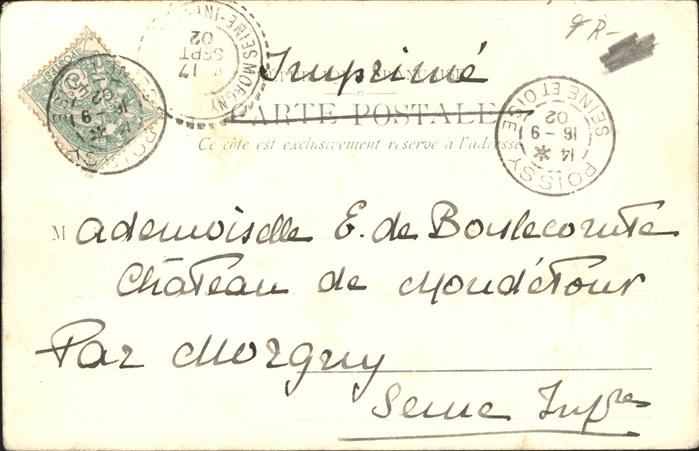 9 R-
Imprimé
CARTE POSTALE
Ce côté est exclusivement réservé à l'adresse
MORGNY SEINE-INF
17
SEPT
02
POISSY
SEINE ET OISE
14
16 - 9
02
POISSY
16 9
02
Mademoiselle E. de Boulecomte
Château de Mondétour
Par Morgny
Seine Infre